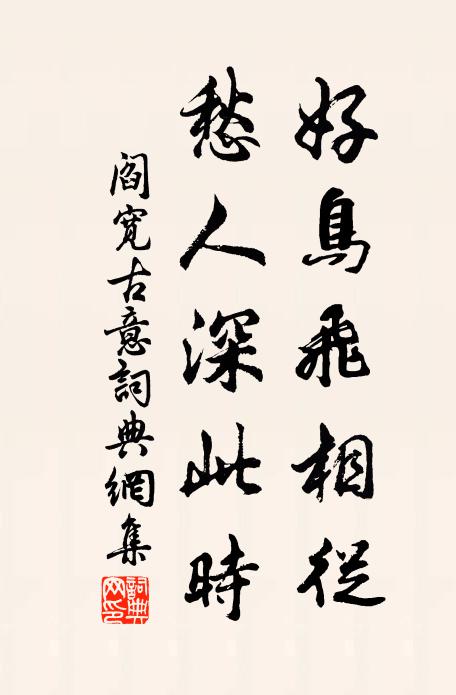 好鳥飛相從
愁人深此時
閻寬古意詞典網集
詞典网印